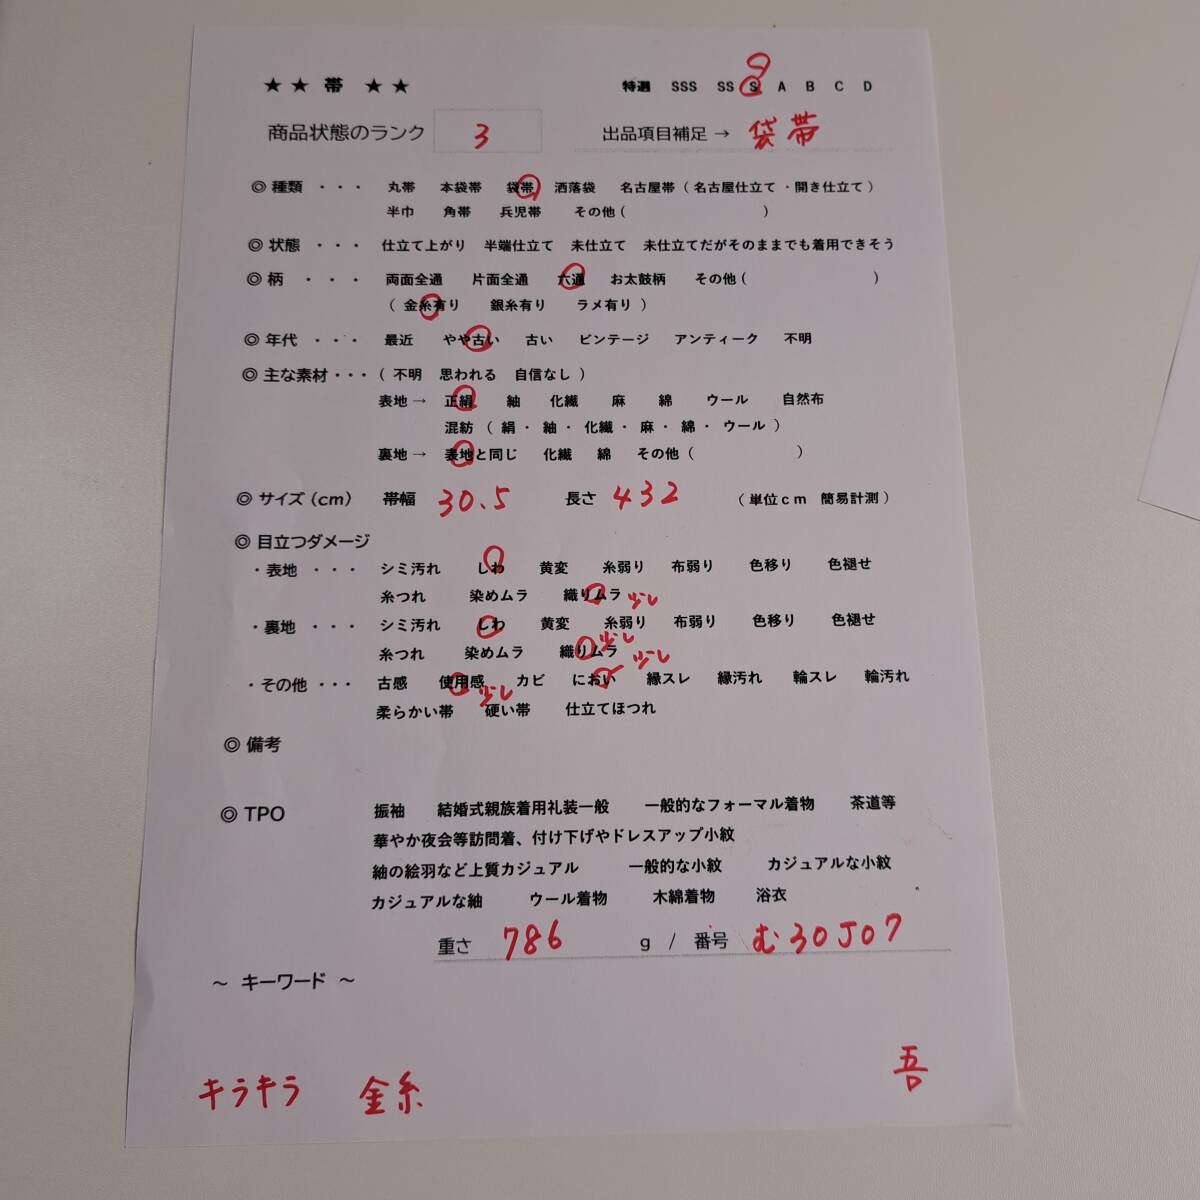 ★★ 帯 ★★ 特選 SSS SS S A B C D
商品状態のランク 3 出品項目補足 → 袋帯
◎ 種類 ・・・ 丸帯 本袋帯 袋帯 洒落袋 名古屋帯 ( 名古屋仕立て ・開き仕立て )
半巾 角帯 兵児帯 その他 ( )
◎ 状態 ・・・ 仕立て上がり 半端仕立て 未仕立て 未仕立てだがそのままでも着用できそう
◎ 柄 ・・・ 両面全通 片面全通 六通 お太鼓柄 その他 ( )
( 金糸有り 銀糸有り ラメ有り )
◎ 年代 ・・・ 最近 やや古い 古い ビンテージ アンティーク 不明
◎ 主な素材・・・ ( 不明 思われる 自信なし )
表地 → 正絹 紬 化繊 麻 綿 ウール 自然布
混紡 ( 絹・ 紬・ 化繊・ 麻・ 綿・ ウール )
裏地 → 表地と同じ 化繊 綿 その他 ( )
◎ サイズ (cm) 帯幅 30.5 長さ 432 ( 単位cm 簡易計測 )
◎ 目立つダメージ
・表地 ・・・ シミ汚れ しわ 黄変 糸弱り 布弱り 色移り 色褪せ
糸つれ 染めムラ 織りムラ 少し
・裏地 ・・・ シミ汚れ しわ 黄変 糸弱り 布弱り 色移り 色褪せ
糸つれ 染めムラ 織りムラ 少し 少し
・その他 ・・・ 古感 使用感 少し カビ におい 縁スレ 縁汚れ 輪スレ 輪汚れ
柔らかい帯 硬い帯 仕立てほつれ
◎ 備考
◎ TPO 振袖 結婚式親族着用礼装一般 一般的なフォーマル着物 茶道等
華やか夜会等訪問着、付け下げやドレスアップ小紋
紬の絵羽など上質カジュアル 一般的な小紋 カジュアルな小紋
カジュアルな紬 ウール着物 木綿着物 浴衣
重さ 786 g / 番号 む30J07
～ キーワード ～
キラキラ 金糸 吾